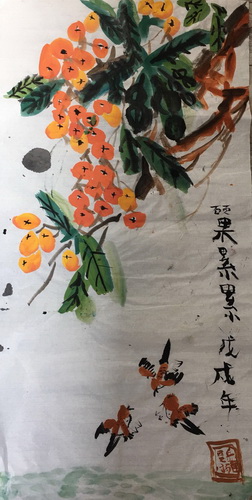 硕果累累 戊戌年